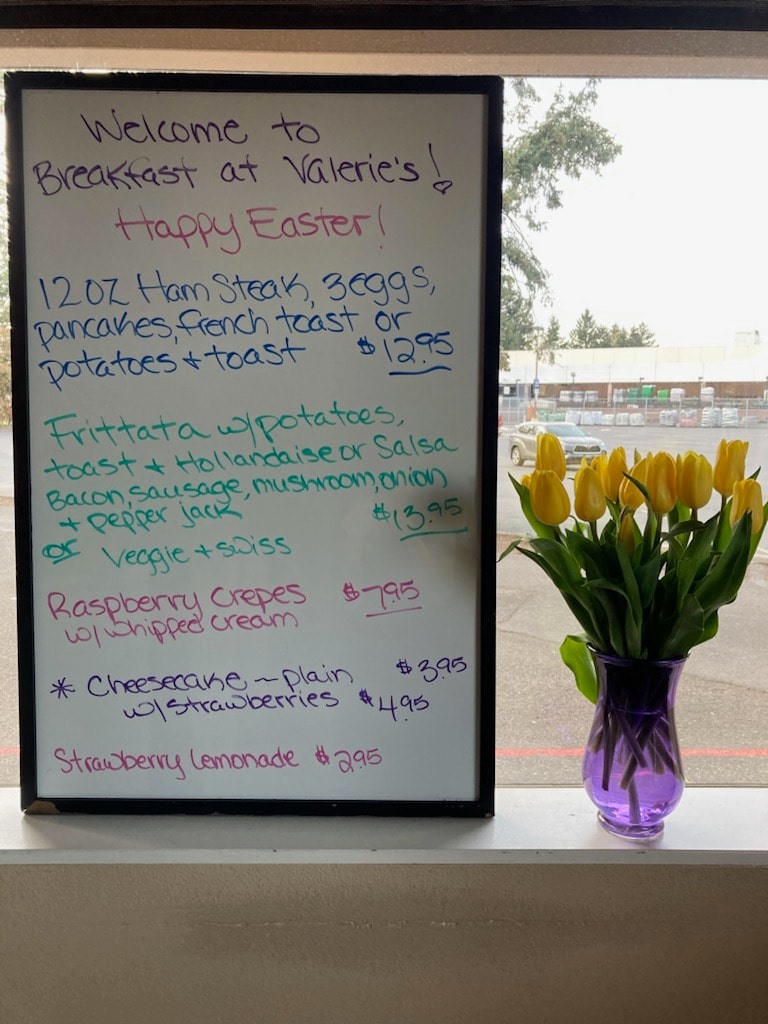 Welcome to
Breakfast at Valerie's!
Happy Easter!
12oz Ham Steak, 3 eggs,
pancakes, french toast or
potatoes + toast $12.95
Frittata w/potatoes,
toast + Hollandaise or Salsa
Bacon, sausage, mushroom, onion
+ pepper jack $13.95
or Veggie + swiss
Raspberry Crepes $7.95
w/whipped cream
* Cheesecake ~ plain $3.95
w/strawberries $4.95
Strawberry Lemonade $2.95